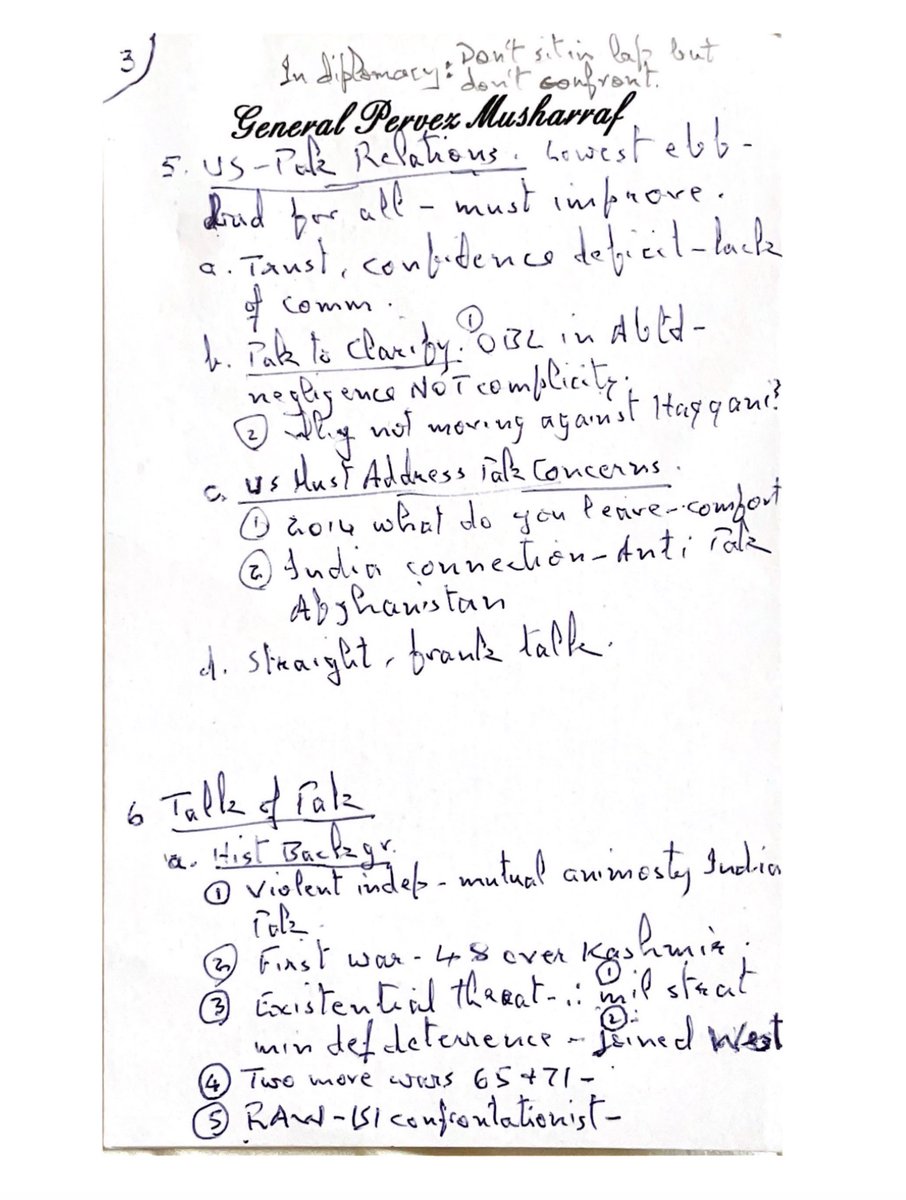 3)
In diplomacy: Don't sit in lap but
don't confront.
General Pervez Musharraf
5. US-Pak Relations. Lowest ebb -
Bad for all - must improve.
a. Trust, confidence deficit - lack
of comm.
b. Pak to Clarify. ① OBL in Abtd -
negligence NOT complicity.
② Why not moving against Haqqani?
c. US Must Address Pak Concerns.
① 2014 what do you leave - comfort
② India connection - Anti Pak
Afghanistan
d. Straight, frank talk.
6 Talk of Pak
a. Hist Backgr.
① Violent indep - mutual animosty India
Pak.
② First war - 48 over Kashmir.
③ Existential threat - ∴ ① mil strat
min def deterrence - ② joined West
④ Two more wars 65 + 71 -
⑤ RAW - ISI confrontationist -